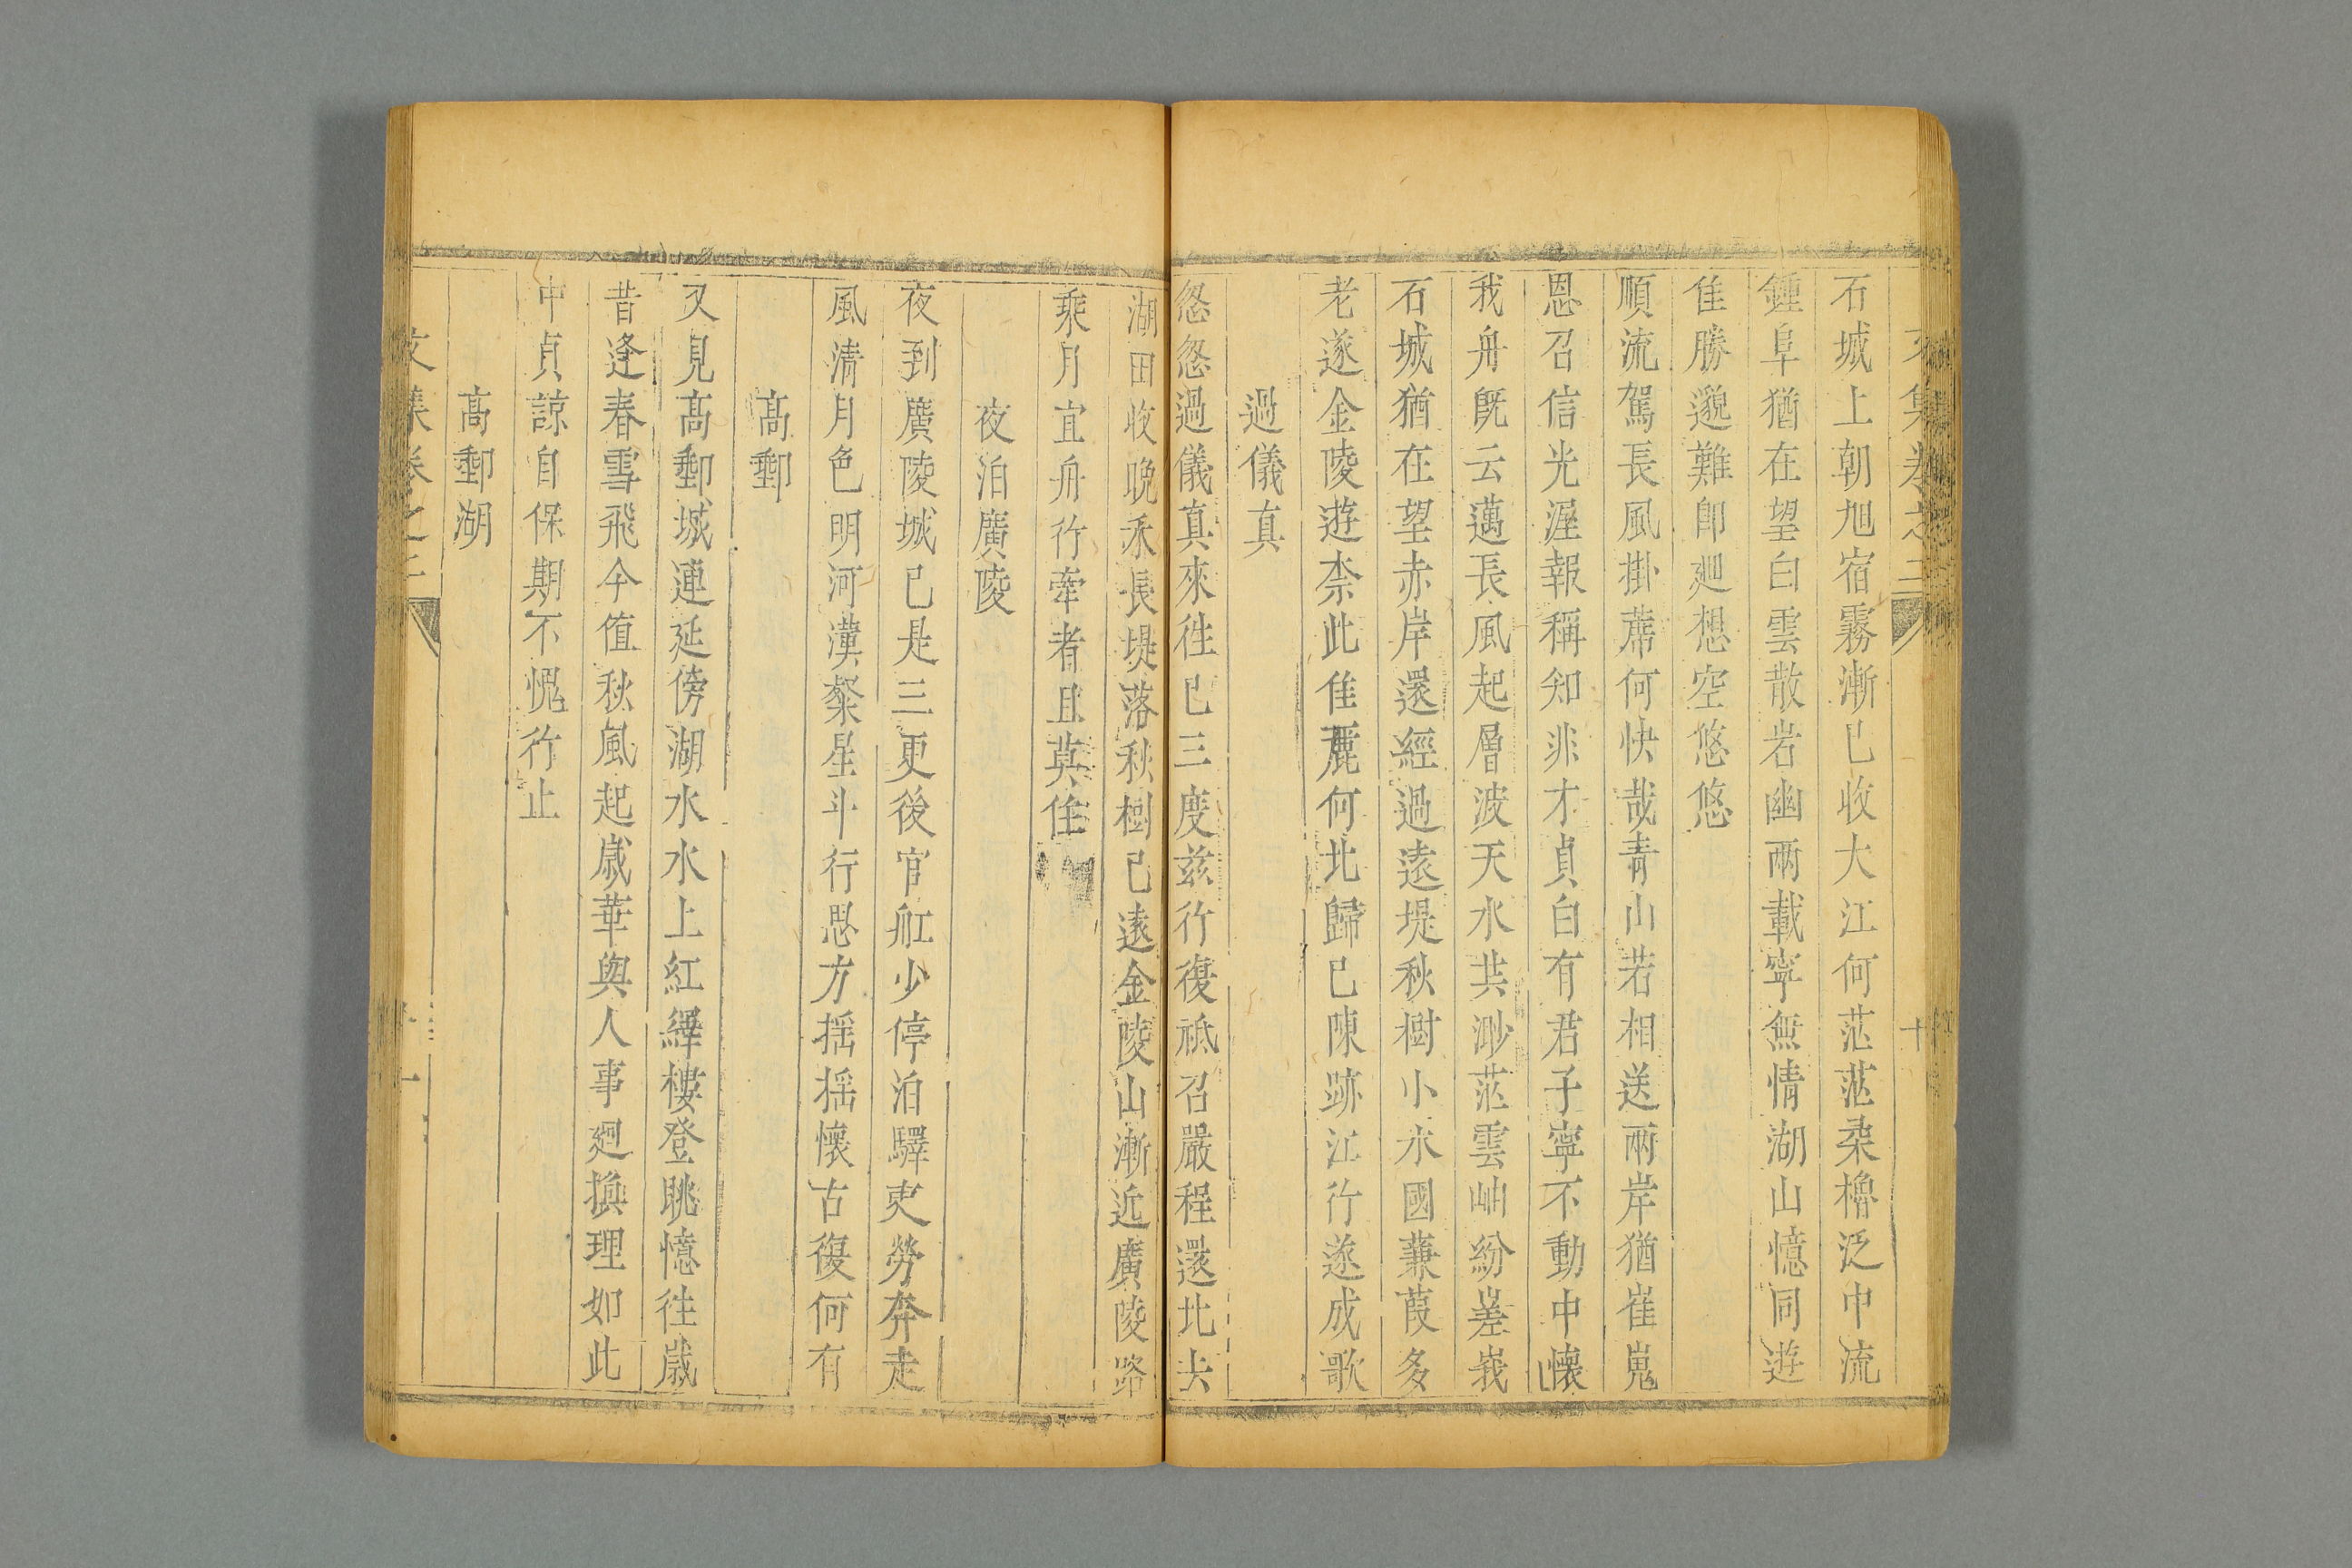 文集卷之三
十
石城上朝旭宿霧漸已收大江何茫茫柔櫓泛中流
鍾阜猶在望白雲散岩幽兩載寧無情湖山憶同遊
佳勝邈難即廻想空悠悠
順流駕長風掛蓆何快哉青山若相送兩岸猶崔嵬
恩召信光渥報稱知非才貞白有君子寧不動中懷
我舟旣云邁長風起層波天水共渺茫雲岫紛嵳峩
石城猶在望赤岸還經過遠堤秋樹小水國蒹葭多
老遂金陵遊柰此佳麗何北歸已陳跡江行遂成歌
過儀真
忽忽過儀真來徃已三度兹行復祗召嚴程還北去
湖田收晚禾長堤落秋樹已遠金陵山漸近廣陵路
乘月宜舟行牽者且莫住
夜泊廣陵
夜到廣陵城已是三更後官舡少停泊驛吏勞奔走
風清月色明河漢粲星斗行思方揺揺懷古復何有
高郵
又見高郵城連延傍湖水水上紅繹樓登眺憶徃歲
昔逢春雪飛今值秋風起歲華與人事廻換理如此
中貞諒自保期不愧行止
高郵湖
文集卷之三
十一